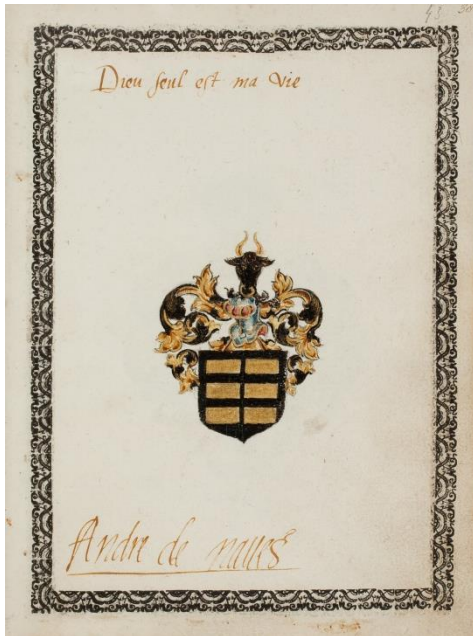 43
Dieu seul est ma vie
Andre de